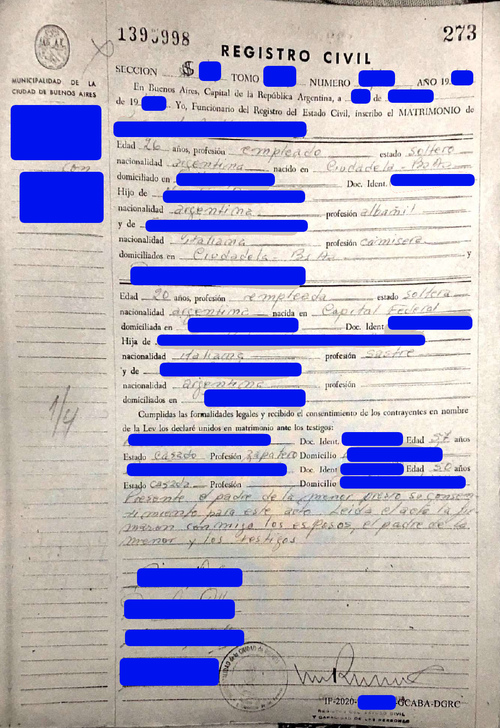 1395998
273
REGISTRO CIVIL
MUNICIPALIDAD DE LA
CIUDAD DE BUENOS AIRES
SECCION TOMO NUMERO AÑO 19
En Buenos Aires, Capital de la República Argentina, a de
de 19 . Yo, Funcionario del Registro del Estado Civil, inscribo el MATRIMONIO de
Edad 26 años, profesión empleado estado soltero
con
nacionalidad argentina nacido en Ciudadela - Bs As
domiciliado en Doc. Ident.
Hijo de
nacionalidad argentina profesión albañil
y de
nacionalidad italiana profesión camisera
domiciliados en Ciudadela - Bs As y
Edad 20 años, profesión empleada estado soltera
nacionalidad argentina nacida en Capital Federal
domiciliada en Doc. Ident
Hija de
nacionalidad italiana profesión sastre
y de
nacionalidad argentina profesión
domiciliados en
1/4
Cumplidas las formalidades legales y recibido el consentimiento de los contrayentes en nombre
de la Ley los declaré unidos en matrimonio ante los testigos:
Doc. Ident. Edad 57 años
Estado casado Profesión zapatero Domicilio
Doc. Ident Edad 50 años
Estado casada Profesión Domicilio
Presente el padre de la menor presto su consen-
timiento para este acto. Leida el acta la fir-
maron conmigo los esposos, el padre de la
menor y los testigos
IF-2020- GCABA-DGRC
Y CAPACIDAD DE LAS PERSONAS